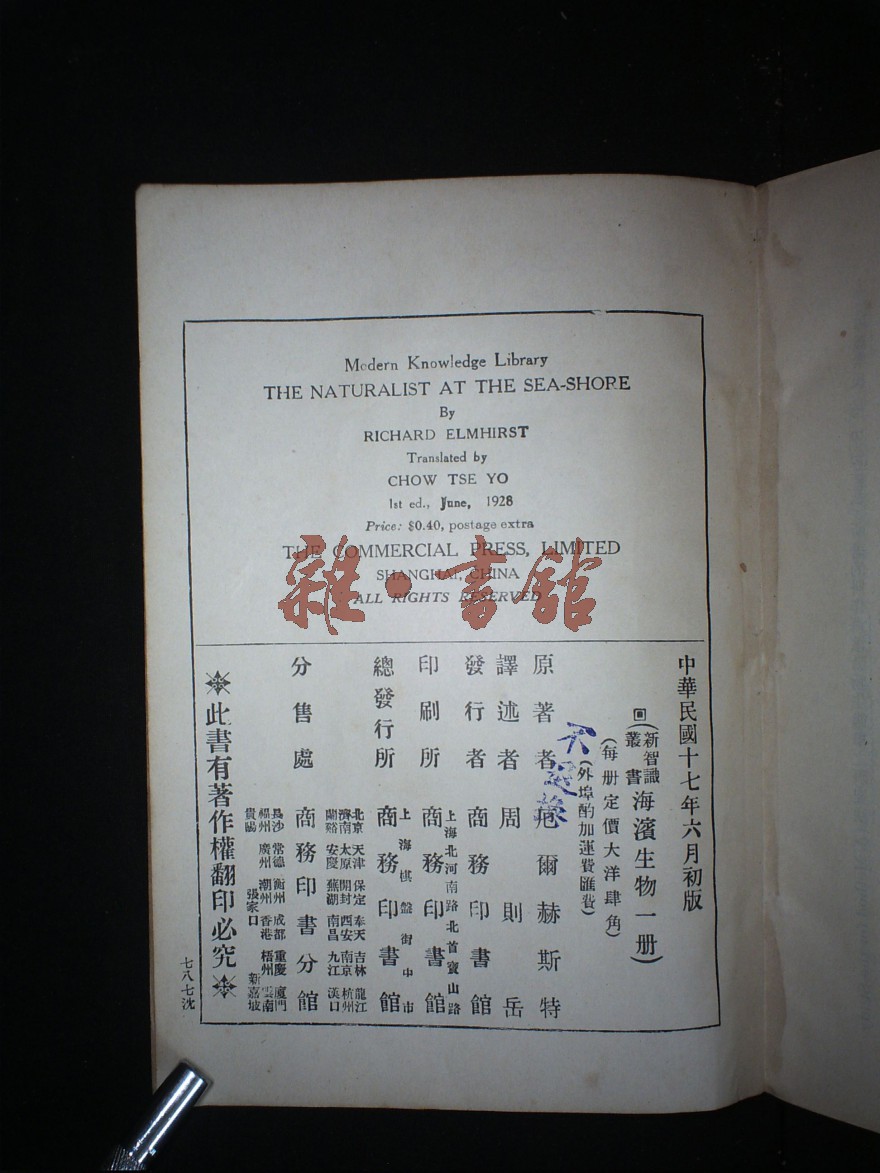 Modern Knowledge Library
THE NATURALIST AT THE SEA-SHORE
By
RICHARD ELMHIRST
Translated by
CHOW TSE YO
1st ed., June, 1928
Price: $0.40, postage extra
THE COMMERCIAL PRESS, LIMITED
SHANGHAI, CHINA
ALL RIGHTS RESERVED
雜·書館
中華民國十七年六月初版
回(新智識叢書海濱生物一册)
(每册定價大洋肆角)
(外埠酌加運費匯費)
原著者 厄爾赫斯特
譯述者 周則岳
發行者 商務印書館
上海北河南路北首寶山路
印刷所 商務印書館
上海棋盤街中市
總發行所 商務印書館
北京 天津 保定 奉天 吉林 龍江
濟南 太原 開封 西安 南京 杭州
蘭谿 安慶 蕪湖 南昌 九江 漢口
分售處 商務印書分館
長沙 常德 衡州 成都 重慶 廈門
福州 廣州 潮州 香港 梧州 雲南
貴陽 張家口 新嘉坡
此書有著作權翻印必究
七八七沈